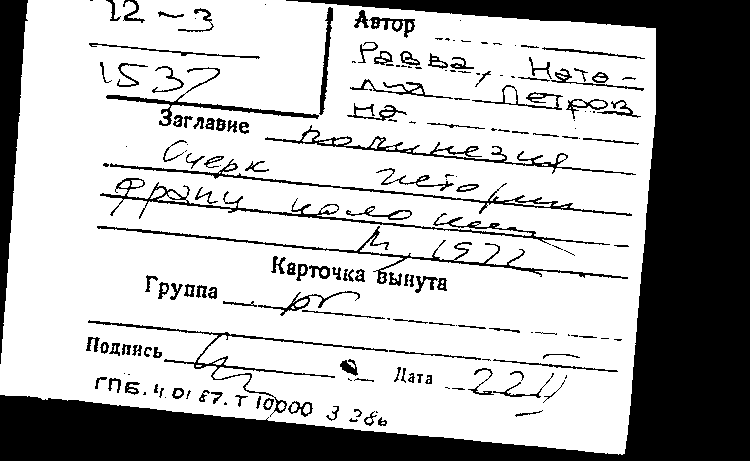 12-3
1537
Автор
Равва, Ната-
лия Петров
на
Заглавие Полинезия
Очерк истории
франц колоний
М, 1972
Карточка вынута
Группа рг
Подпись
Дата 22 II
ГПБ. Ч. 01 87. Т 10000 З 286